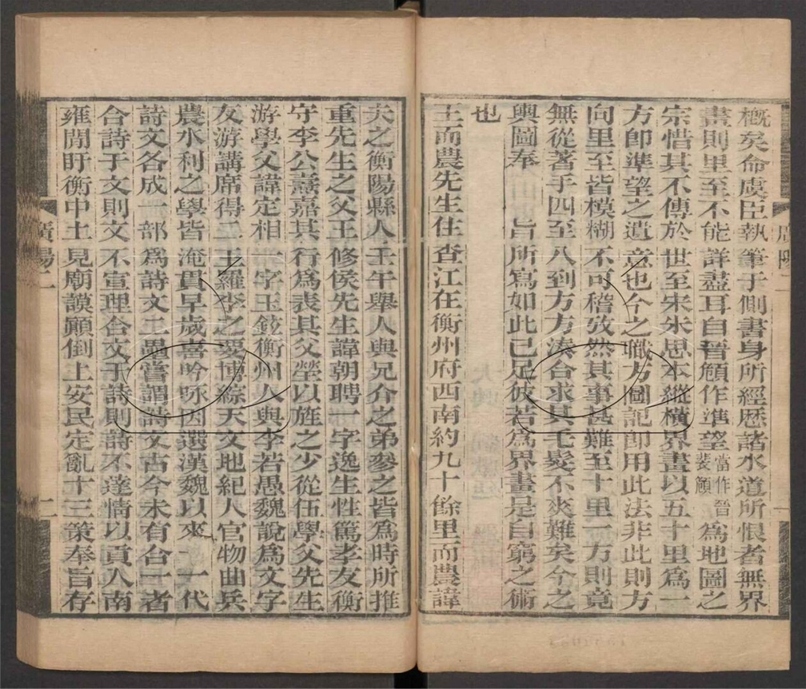 概矣命虞臣執筆于側書身所經歷諸水道所恨者無界
畫則里至不能詳盡耳自晉顧作準望當作晉裴顧為地圖之
宗惜其不傳於世至宋朱思本縱橫界畫以五十里為一
方卽準望之遺意也今之職方圖記卽用此法非此則方
向里至皆模糊不可稽攷然其事甚難至十里一方則竟
無從著手四至八到方方湊合求其毛髮不爽難矣今之
輿圖奉旨所寫如此已足彼若為界畫是自窮之術
也
王而農先生住查江在衡州府西南約九十餘里而農諱
夫之衡陽縣人壬午舉人與兄介之弟參之皆為時所推
重先生之父王修侯先生諱朝聘一字逸生性篤孝友衡
守李公燾嘉其行為表其父塋以旌之少從伍學父先生
游學父諱定相一字玉鉉衡州人與李若愚魏說為文字
友游講席得二王羅李之要博綜天文地紀人官物曲兵
農水利之學皆淹貫早歲喜吟咏因選漢魏以來一代
詩文各成一部為詩文王愚嘗謂詩文古今未有合一者
合詩于文則文不宣理合文于詩則詩不達情以貢入南
雍閒盱衡中土見廟謨顛倒上安民定亂十三策奉旨存
廣陽二
廣陽二
二